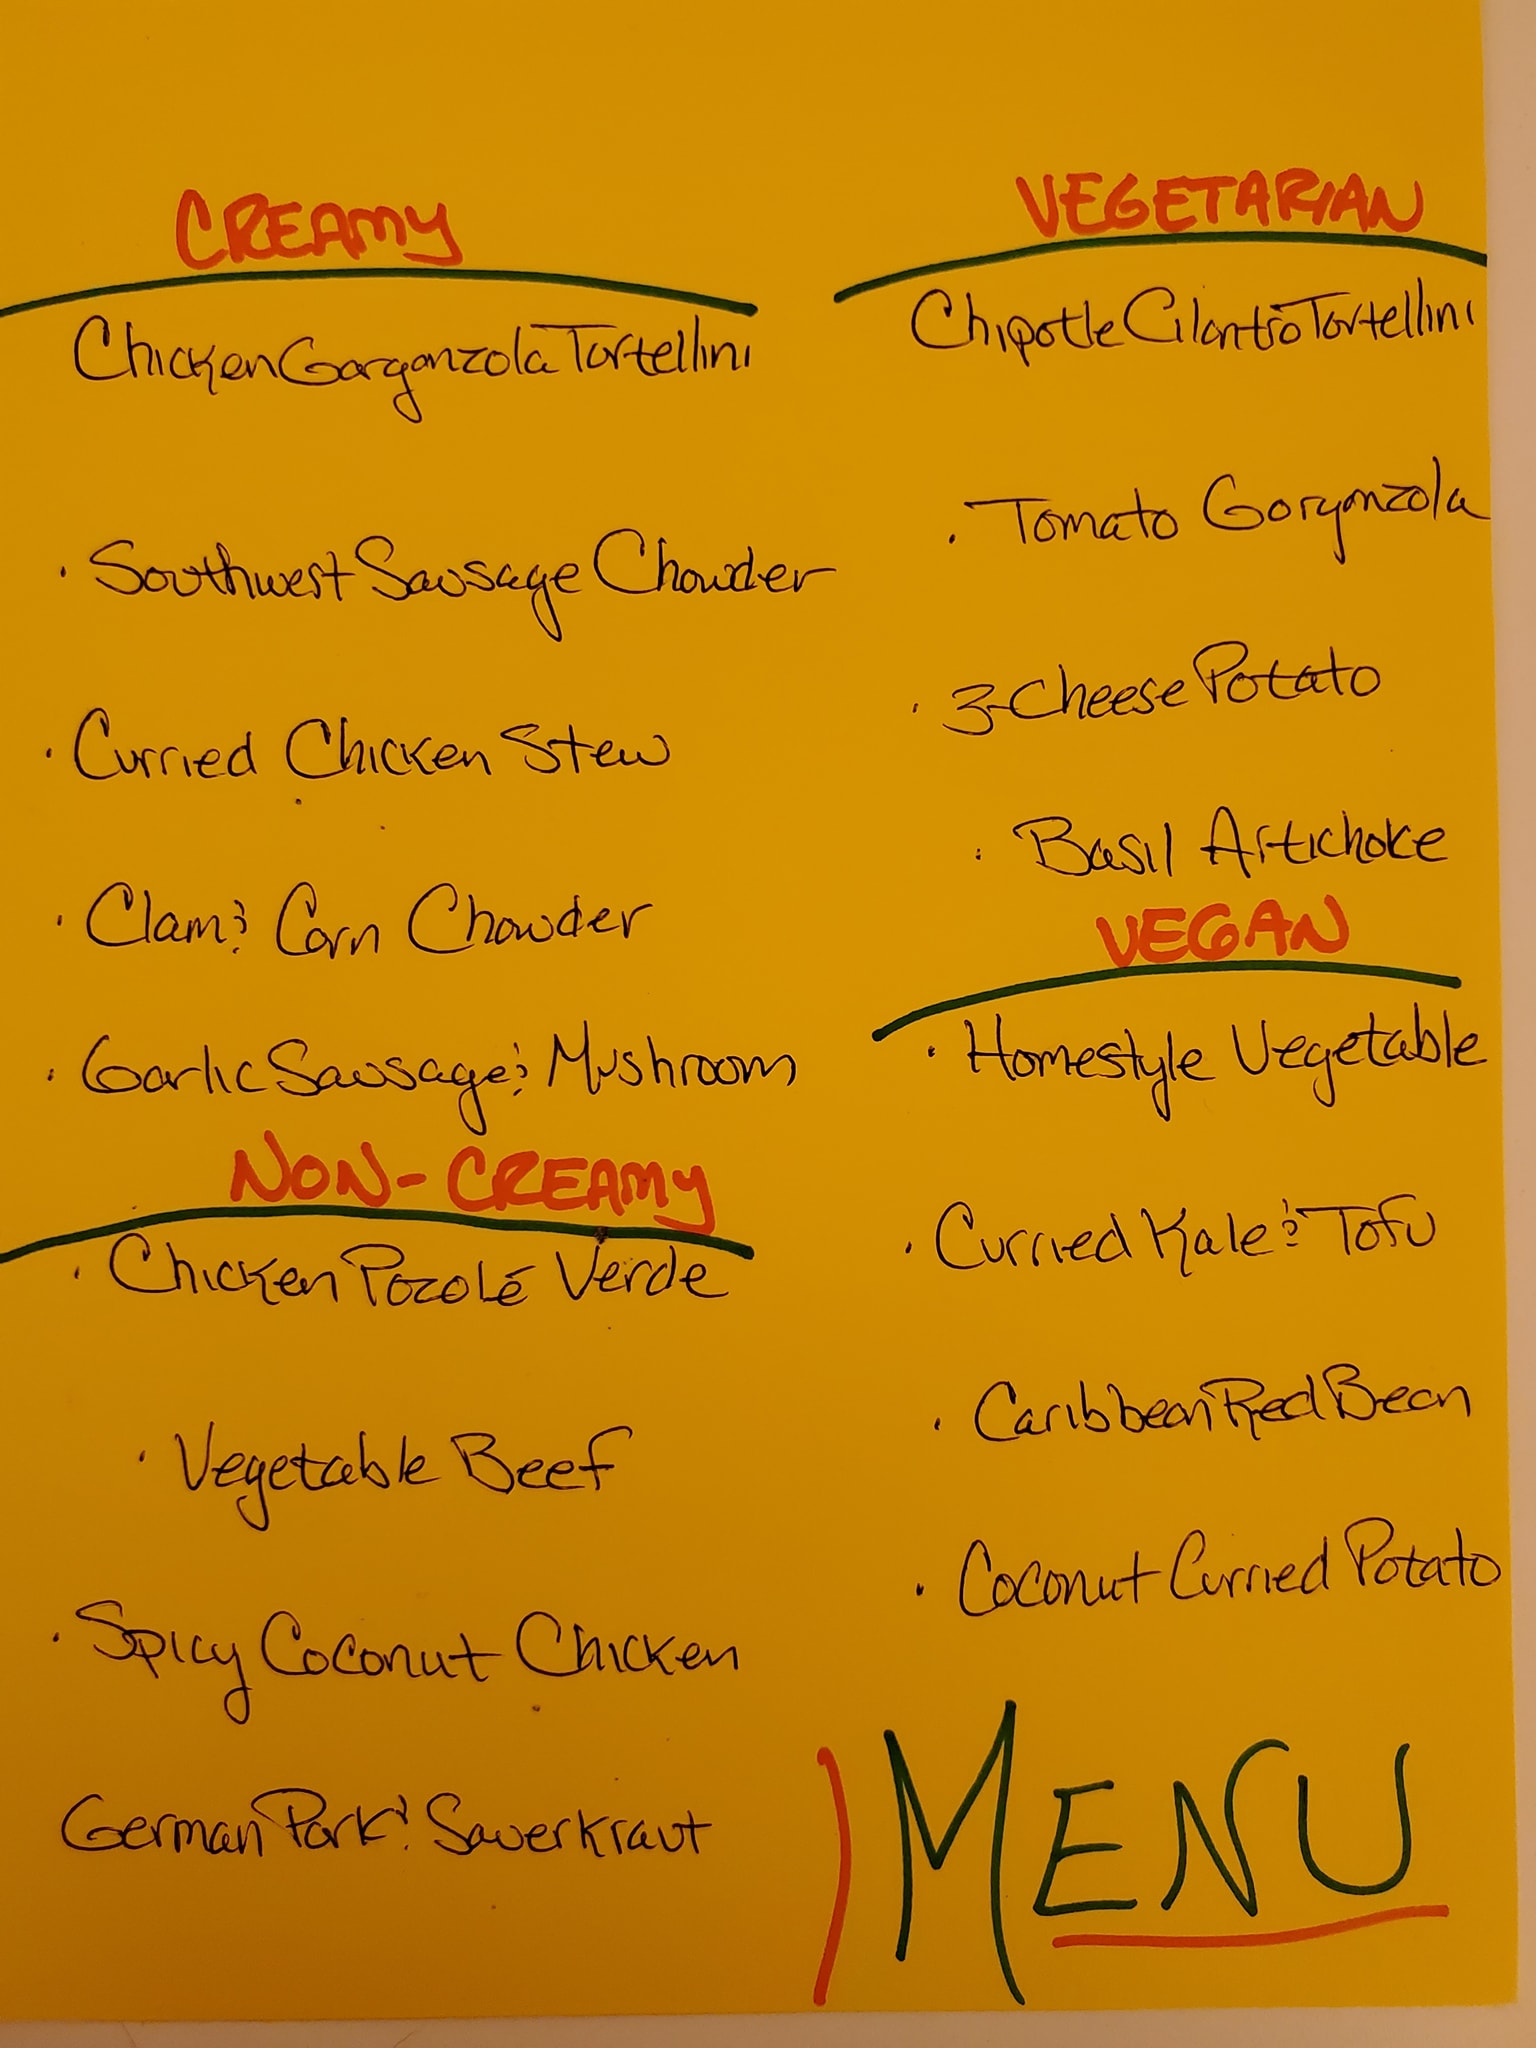 CREAMY
Chicken Gorgonzola Tortellini
· Southwest Sausage Chowder
· Curried Chicken Stew
· Clam & Corn Chowder
· Garlic Sausage & Mushroom
NON-CREAMY
· Chicken Pozolé Verde
· Vegetable Beef
· Spicy Coconut Chicken
German Pork & Sauerkraut
VEGETARIAN
Chipotle Cilantro Tortellini
· Tomato Gorgonzola
· 3-Cheese Potato
· Basil Artichoke
VEGAN
· Homestyle Vegetable
· Curried Kale & Tofu
· Caribbean Red Bean
· Coconut Curried Potato
MENU